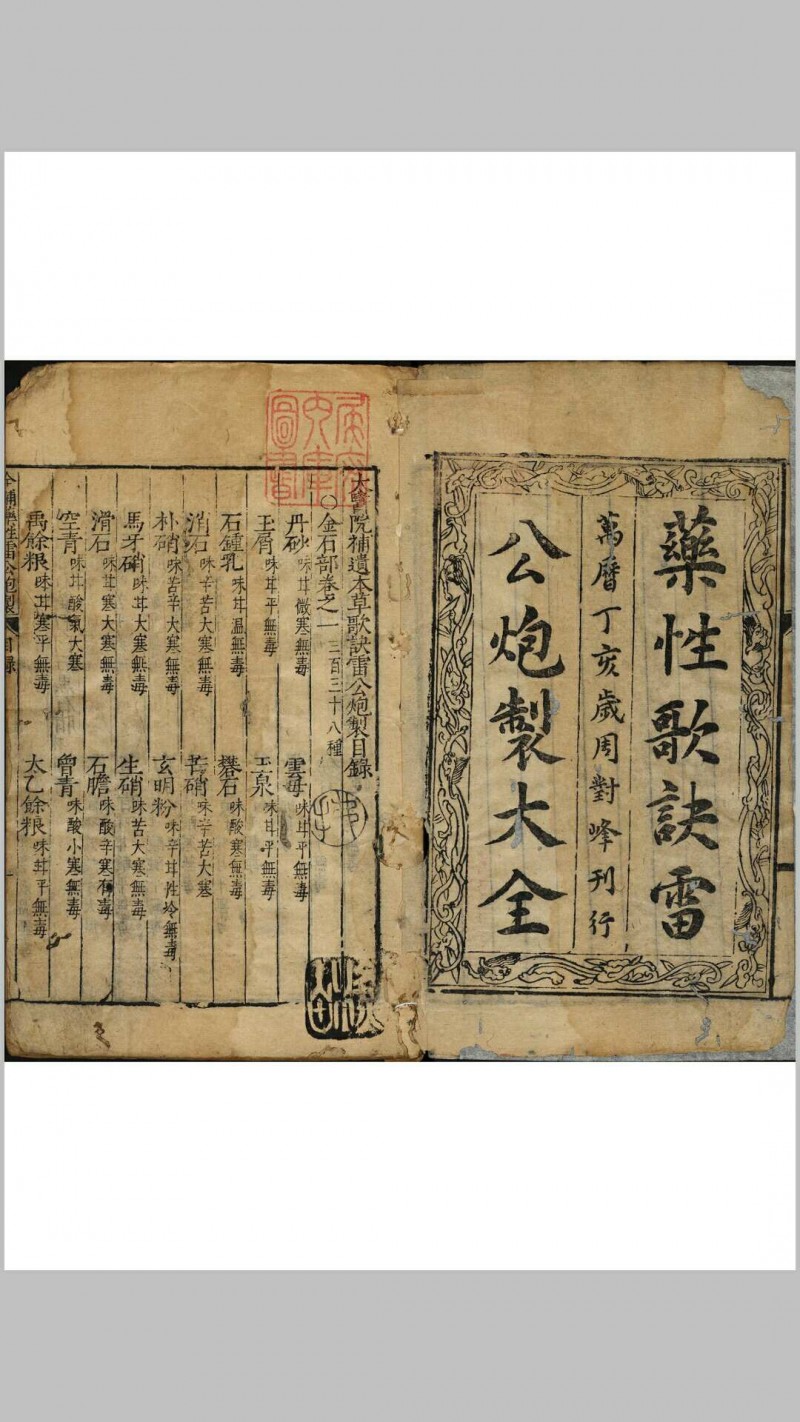 藥性歌訣雷
萬曆丁亥歲周對峰刊行
公炮製大全
太醫院補遺本草歌訣雷公炮製目錄
○金石部卷之一 三百三十八種
丹砂 味甘微寒無毒 雲母 味甘平無毒
玉屑 味甘平無毒 玉泉 味甘平無毒
石鍾乳 味甘温無毒 礬石 味酸寒無毒
消石 味辛苦大寒無毒 芒硝 味辛苦大寒
朴硝 味苦辛大寒無毒 玄明粉 味辛甘性冷無毒
馬牙硝 味甘大寒無毒 生硝 味苦大寒無毒
滑石 味甘寒大寒無毒 石膽 味酸辛寒有毒
空青 味甘酸氣大寒 曾青 味酸小寒無毒
禹餘粮 味甘寒平無毒 太乙餘粮 味甘平無毒
目錄